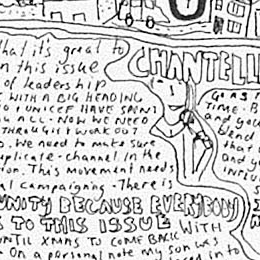 that it's great to
n this issue
of leadership
CHANTELL
WITH A BIG HEADING
UNICEF HAVE SPENT
ALL - NOW WE NEED
THROUGH & WORK OUT
we need to make sure
plicate - channel in the
ion. This movement needs
al campaigning. There is
UNITY BECAUSE EVERYBODY
S TO THIS ISSUE WITH
UNTIL XMAS TO COME BACK
On a personal note my son was
TIME - B
and you
blend
that
and y